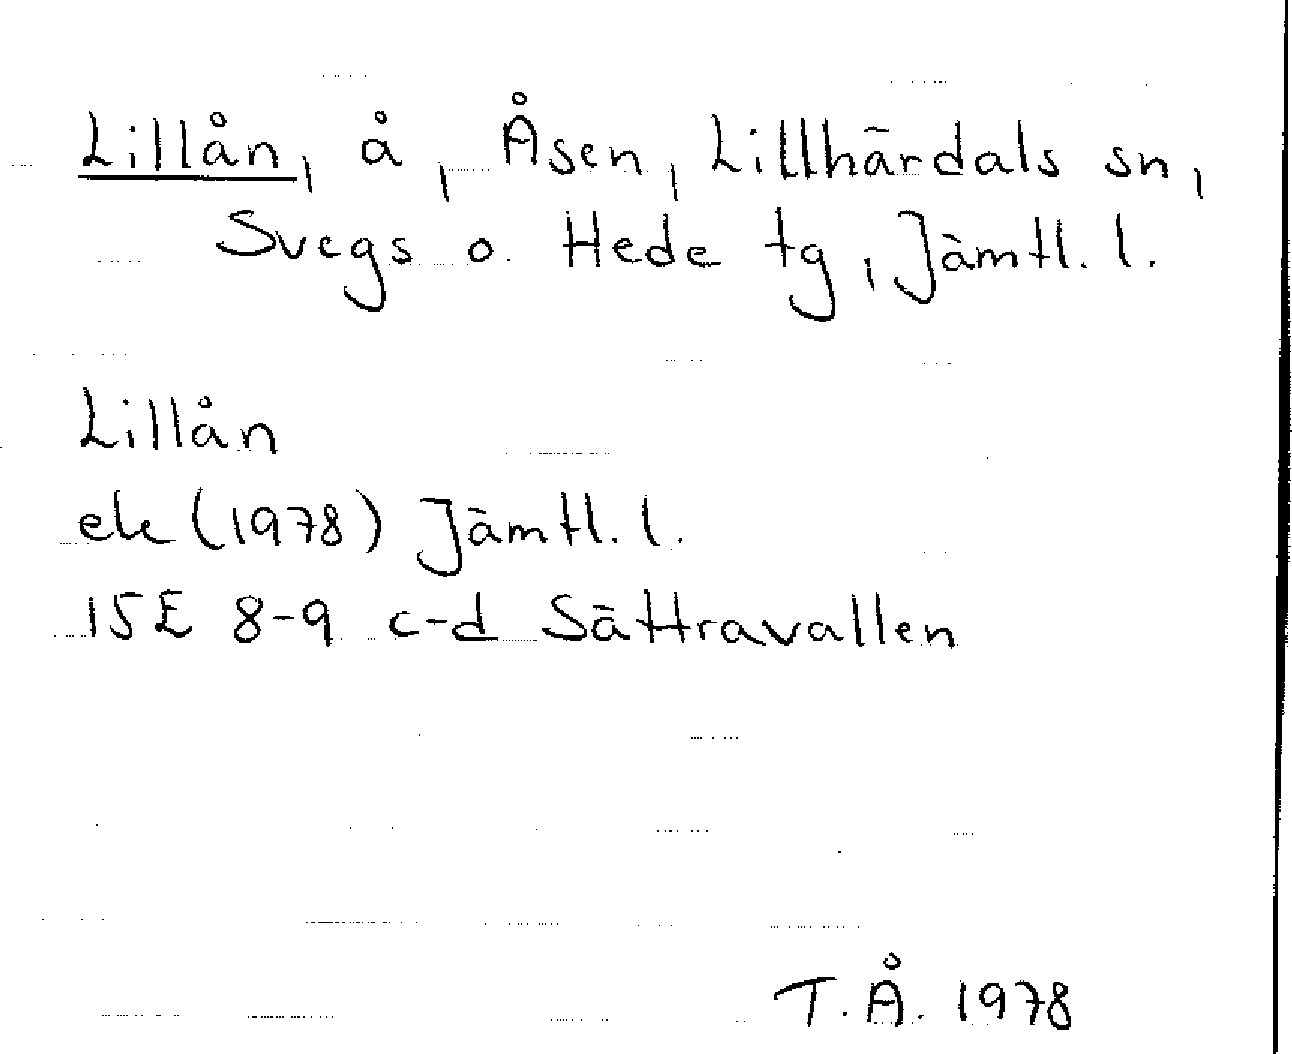 Lillån, å, Åsen, Lillhärdals sn,
Svegs o. Hede tg, Jämtl. l.
Lillån
ek (1978) Jämtl. l.
15E 8-9 c-d Sättravallen
T.Å. 1978